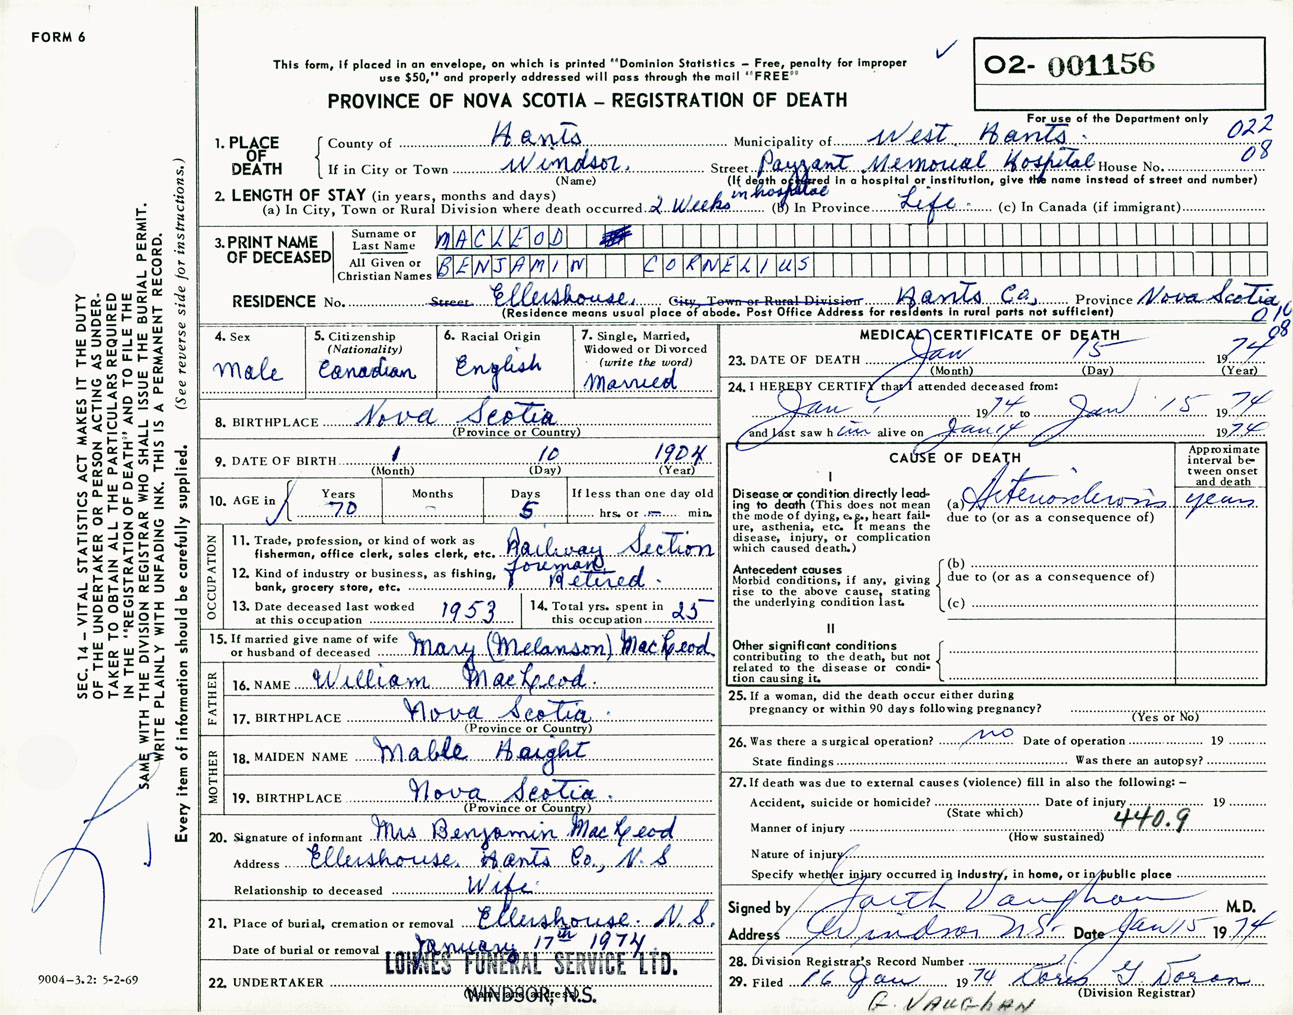 FORM 6
This form, if placed in an envelope, on which is printed "Dominion Statistics – Free, penalty for improper
use $50," and properly addressed will pass through the mail "FREE"
PROVINCE OF NOVA SCOTIA – REGISTRATION OF DEATH
02- 001156
For use of the Department only
022
08
1. PLACE OF DEATH
County of Hants Municipality of West Hants.
If in City or Town Windsor. Street Payzant Memorial Hospital House No.
(Name) (If death occurred in a hospital or institution, give the name instead of street and number)
2. LENGTH OF STAY (in years, months and days)
(a) In City, Town or Rural Division where death occurred 2 Weeks in hospital (b) In Province Life. (c) In Canada (if immigrant)
3. PRINT NAME OF DECEASED
Surname or Last Name MACLEOD
All Given or Christian Names BENJAMIN CORNELIUS
RESIDENCE No. Street Ellershouse. City, Town or Rural Division Hants Co. Province Nova Scotia
(Residence means usual place of abode. Post Office Address for residents in rural parts not sufficient)
08
4. Sex
Male
5. Citizenship
(Nationality)
Canadian
6. Racial Origin
English
7. Single, Married,
Widowed or Divorced
(write the word)
Married
8. BIRTHPLACE Nova Scotia
(Province or Country)
9. DATE OF BIRTH 1 10 1904
(Month) (Day) (Year)
10. AGE in
Years Months Days If less than one day old
70 – 5 hrs. or — min.
OCCUPATION
11. Trade, profession, or kind of work as
fisherman, office clerk, sales clerk, etc. Railway Section
foreman
12. Kind of industry or business, as fishing,
bank, grocery store, etc. Retired.
13. Date deceased last worked
at this occupation 1953
14. Total yrs. spent in
this occupation 25
15. If married give name of wife
or husband of deceased Mary (Melanson) MacLeod
FATHER
16. NAME William MacLeod.
17. BIRTHPLACE Nova Scotia.
(Province or Country)
MOTHER
18. MAIDEN NAME Mable Haight
19. BIRTHPLACE Nova Scotia.
(Province or Country)
20. Signature of informant Mrs Benjamin MacLeod
Address Ellershouse. Hants Co., N. S
Relationship to deceased Wife.
21. Place of burial, cremation or removal Ellershouse. N.S.
Date of burial or removal January 17th 1974
22. UNDERTAKER
LOHNES FUNERAL SERVICE LTD.
WINDSOR, N.S.
(Name and address)
MEDICAL CERTIFICATE OF DEATH
23. DATE OF DEATH Jan 15 1974
(Month) (Day) (Year)
24. I HEREBY CERTIFY that I attended deceased from:
Jan 1974 to Jan 15 1974
and last saw him alive on Jan 14 1974
CAUSE OF DEATH
Approximate
interval be-
tween onset
and death
I
Disease or condition directly lead-
ing to death (This does not mean
the mode of dying, e.g., heart fail-
ure, asthenia, etc. It means the
disease, injury, or complication
which caused death.)
(a) Arteriosclerosis years
due to (or as a consequence of)
Antecedent causes
Morbid conditions, if any, giving
rise to the above cause, stating
the underlying condition last.
(b)
due to (or as a consequence of)
(c)
II
Other significant conditions
contributing to the death, but not
related to the disease or condi-
tion causing it.
25. If a woman, did the death occur either during
pregnancy or within 90 days following pregnancy?
(Yes or No)
26. Was there a surgical operation? no Date of operation 19
State findings Was there an autopsy?
27. If death was due to external causes (violence) fill in also the following: –
Accident, suicide or homicide? Date of injury 19
(State which)
440.9
Manner of injury
(How sustained)
Nature of injury
Specify whether injury occurred in industry, in home, or in public place
Signed by Garth Vaughan M.D.
Address Windsor NS. Date Jan 15 1974
28. Division Registrar's Record Number
29. Filed 16 Jan 1974 Doris G Doran
(Division Registrar)
G. VAUGHAN
SEC. 14 – VITAL STATISTICS ACT MAKES IT THE DUTY
OF THE UNDERTAKER OR PERSON ACTING AS UNDER-
TAKER TO OBTAIN ALL THE PARTICULARS REQUIRED
IN THE "REGISTRATION OF DEATH" AND TO FILE THE
SAME WITH THE DIVISION REGISTRAR WHO SHALL ISSUE THE BURIAL PERMIT.
WRITE PLAINLY WITH UNFADING INK. THIS IS A PERMANENT RECORD.
Every item of information should be carefully supplied. (See reverse side for instructions.)
9004–3.2: 5-2-69